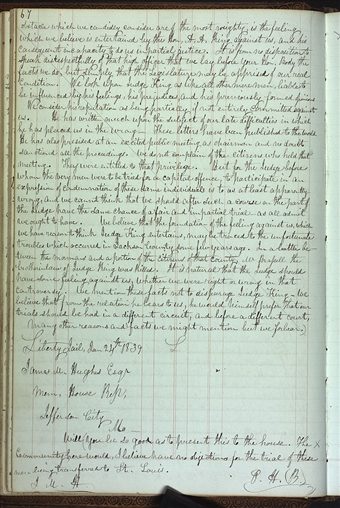 67
obstacle which we candidly consider are of the most weighty, is the feeling
which we believe is entertained by the Hon. A. A. King against us, and his
consequent incapacity to do us impartial justice. It is from no disposition to
speak disrespectfully of that high officer that we lay before your Hon. Body the
facts we do, but simply that the Legislature may be apprised of our real
condition. We look upon Judge King as like all other mere men, liable to
be influenced by his feelings, his prejudices, and his previously formed opinions
We consider his reputation as being partially if not entirely committed against
us. He has written much upon the subject of our late difficulties in which
he has placed us in the wrong. These letters have been published to the world
He has also presided at an excited public meeting as chairman and no doubt
sanctioned all the proceedings. We do not complain of the citizens who held that
meeting. They were entitled to that privilege. But for the Judge before
whom the very men were to be tried for a capital offence, to participate in an
expression of condemnation of these same individuals is to us at least apparently
wrong, and we cannot think that we should after such a course on the part of
the Judge have the same chance of a fair and impartial trial as all admit
we ought to have. We believe that the foundation of the feeling against us which
we have reason to think Judge King entertains, may be traced to the unfortunate
troubles which occurred in Jackson County some few years ago. In a battle be-
tween the mormons and a portion of the citizens of that county, Mr
brotherinlaw of Judge King was Killed. It is natural that the Judge should
have some feeling against us, whether we were right or wrong in that
controversy. We mention these facts not to disparage Judge King. We
believe that from the relation he bears to us, he would himself prefer that our
trials should be had in a different circuit, and before a different court.
Many other reasons and facts we might mention but we forbear.
Liberty Jail, Jan 24th 1839
James M. Hughs Esqr
Mem. House Reps,
Jefferson City
Mo
Will you be so good as to present this to the house. The
community here would, I believe have no objections for the trial of these
men being transferred to St. Louis.
P. H. B.
J M H